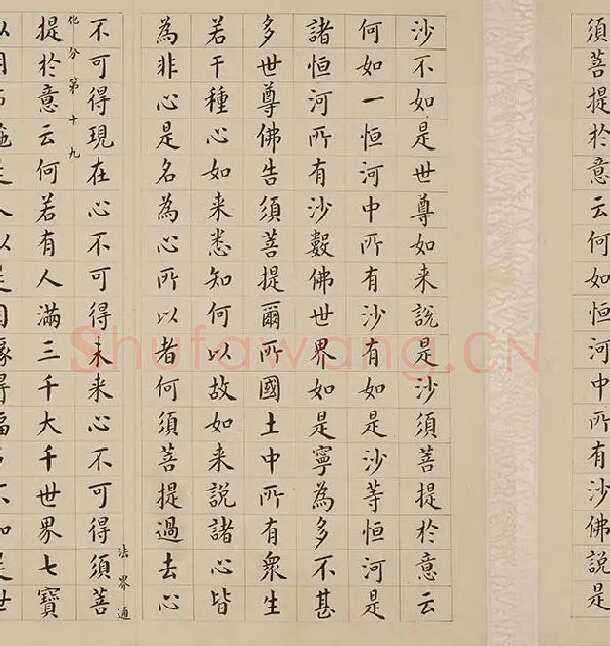 須菩提於意云何如恒河中所有沙佛說是
沙不如是世尊如来說是沙須菩提於意云
何如一恒河中所有沙有如是沙等恒河是
諸恒河所有沙數佛世界如是寧為多不甚
多世尊佛告須菩提爾所國土中所有衆生
若干種心如来悉知何以故如来說諸心皆
為非心是名為心所以者何須菩提過去心
法界通
不可得現在心不可得未来心不可得須菩
化分第十九
提於意云何若有人滿三千大千世界七寶
Shufawang.CN